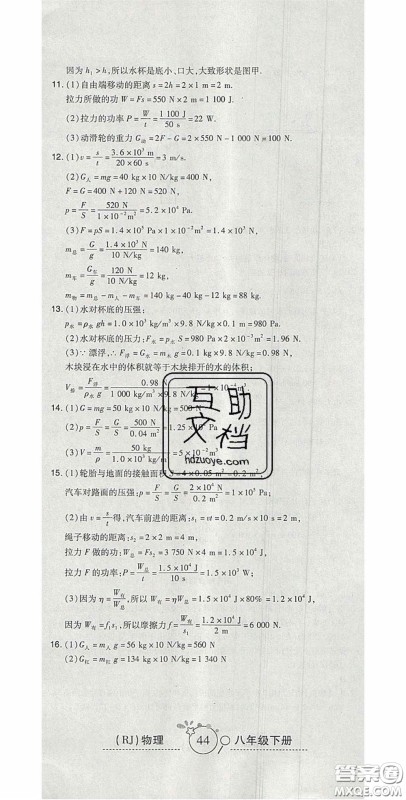 因为 h₁ > h，所以水杯是底小、口大，大致形状是图甲.
11. (1)自由端移动的距离 s = 2h = 2 × 1 m = 2 m.
拉力所做的功 W = Fs = 550 N × 2 m = 1 100 J.
(2)拉力的功率 P = W/t = 1 100 J/50 s = 22 W.
(3)动滑轮的重力 G动 = 2F − G = 2 × 550 N − 1 000 N = 100 N.
12. (1) v = s/t = 3.6 × 10³ m/20 × 60 s = 3 m/s.
(2) G人 = mg = 40 kg × 10 N/kg = 400 N,
F = G = 400 N + 120 N = 520 N,
p = F/S = 520 N/1 × 10⁻² m² = 5.2 × 10⁴ Pa.
(3) F = pS = 1.4 × 10⁵ Pa × 1 × 10⁻² m² = 1.4 × 10³ N,
m总 = G/g = 1.4 × 10³ N/10 N/kg = 140 kg,
m车 = G车/g = 120 N/10 N/kg = 12 kg,
m物 = m总 − m人 − m车 = 140 kg − 40 kg − 12 kg = 88 kg.
13. (1)水对杯底的压强：
p水 = ρ水 gh = 1.0 × 10³ kg/m³ × 9.8 N/kg × 0.1 m = 980 Pa.
(2)水对杯底的压力 F = pS = 980 Pa × 2 × 10⁻³ m² = 1.96 N.
(3)∵漂浮，∴ F浮 = G木 = m木 g = 0.1 kg × 9.8 N/kg = 0.98 N.
木块浸在水中的体积就等于木块排开的水的体积
V排 = F浮/ρ水 g = 0.98 N/1 000 kg/m³ × 9.8 N/kg = 1 × 10⁻⁴ m³.
14. (1) G = mg = 50 kg × 10 N/kg = 500 N
(2) p = F/S = G/S = 500 N/0.04 m²
(3) ρ = m/V = 50 kg
15. (1)轮胎与地面的接触面积 S = 4 × 0.05 m² = 0.2 m²,
汽车对路面的压强：p = F/S = G/S = 2 × 10⁴ N/0.2 m² = 1 × 10⁵ Pa.
(2)由 v = s/t 得，汽车前进的距离：s₁ = vt = 0.2 m/s × 10 s = 2 m,
绳子移动的距离：s₂ = 2 m × 2 = 4 m,
拉力 F 做的功：W总 = Fs₂ = 3 750 N × 4 m = 1.5 × 10⁴ J,
拉力 F 的功率：P = W总/t = 1.5 × 10⁴ J/10 s = 1.5 × 10³ W.
(3)因为 η = W有/W总，所以 W有 = ηW总 = 1.5 × 10⁴ J × 80% = 1.2 × 10⁴ J.
因为 W有 = f₁s₁，所以摩擦力 f = 1.2 × 10⁴ J/2 m = 6 000 N.
16. (1) G人 = m人g = 56 kg × 10 N/kg = 560 N
(2) G杠 = m杠g = 134 kg × 10 N/kg = 1 340 N
互助文档
hdzuoye.com
(RJ)物理 44 八年级下册
答案圈
MXQE.COM